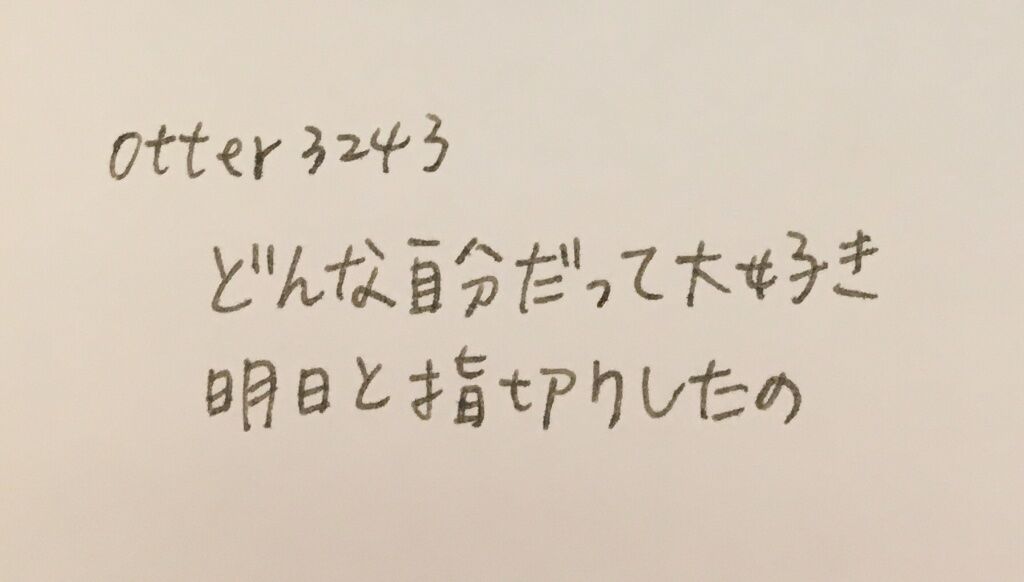 otter3243
どんな自分だって大好き
明日と指切りしたの